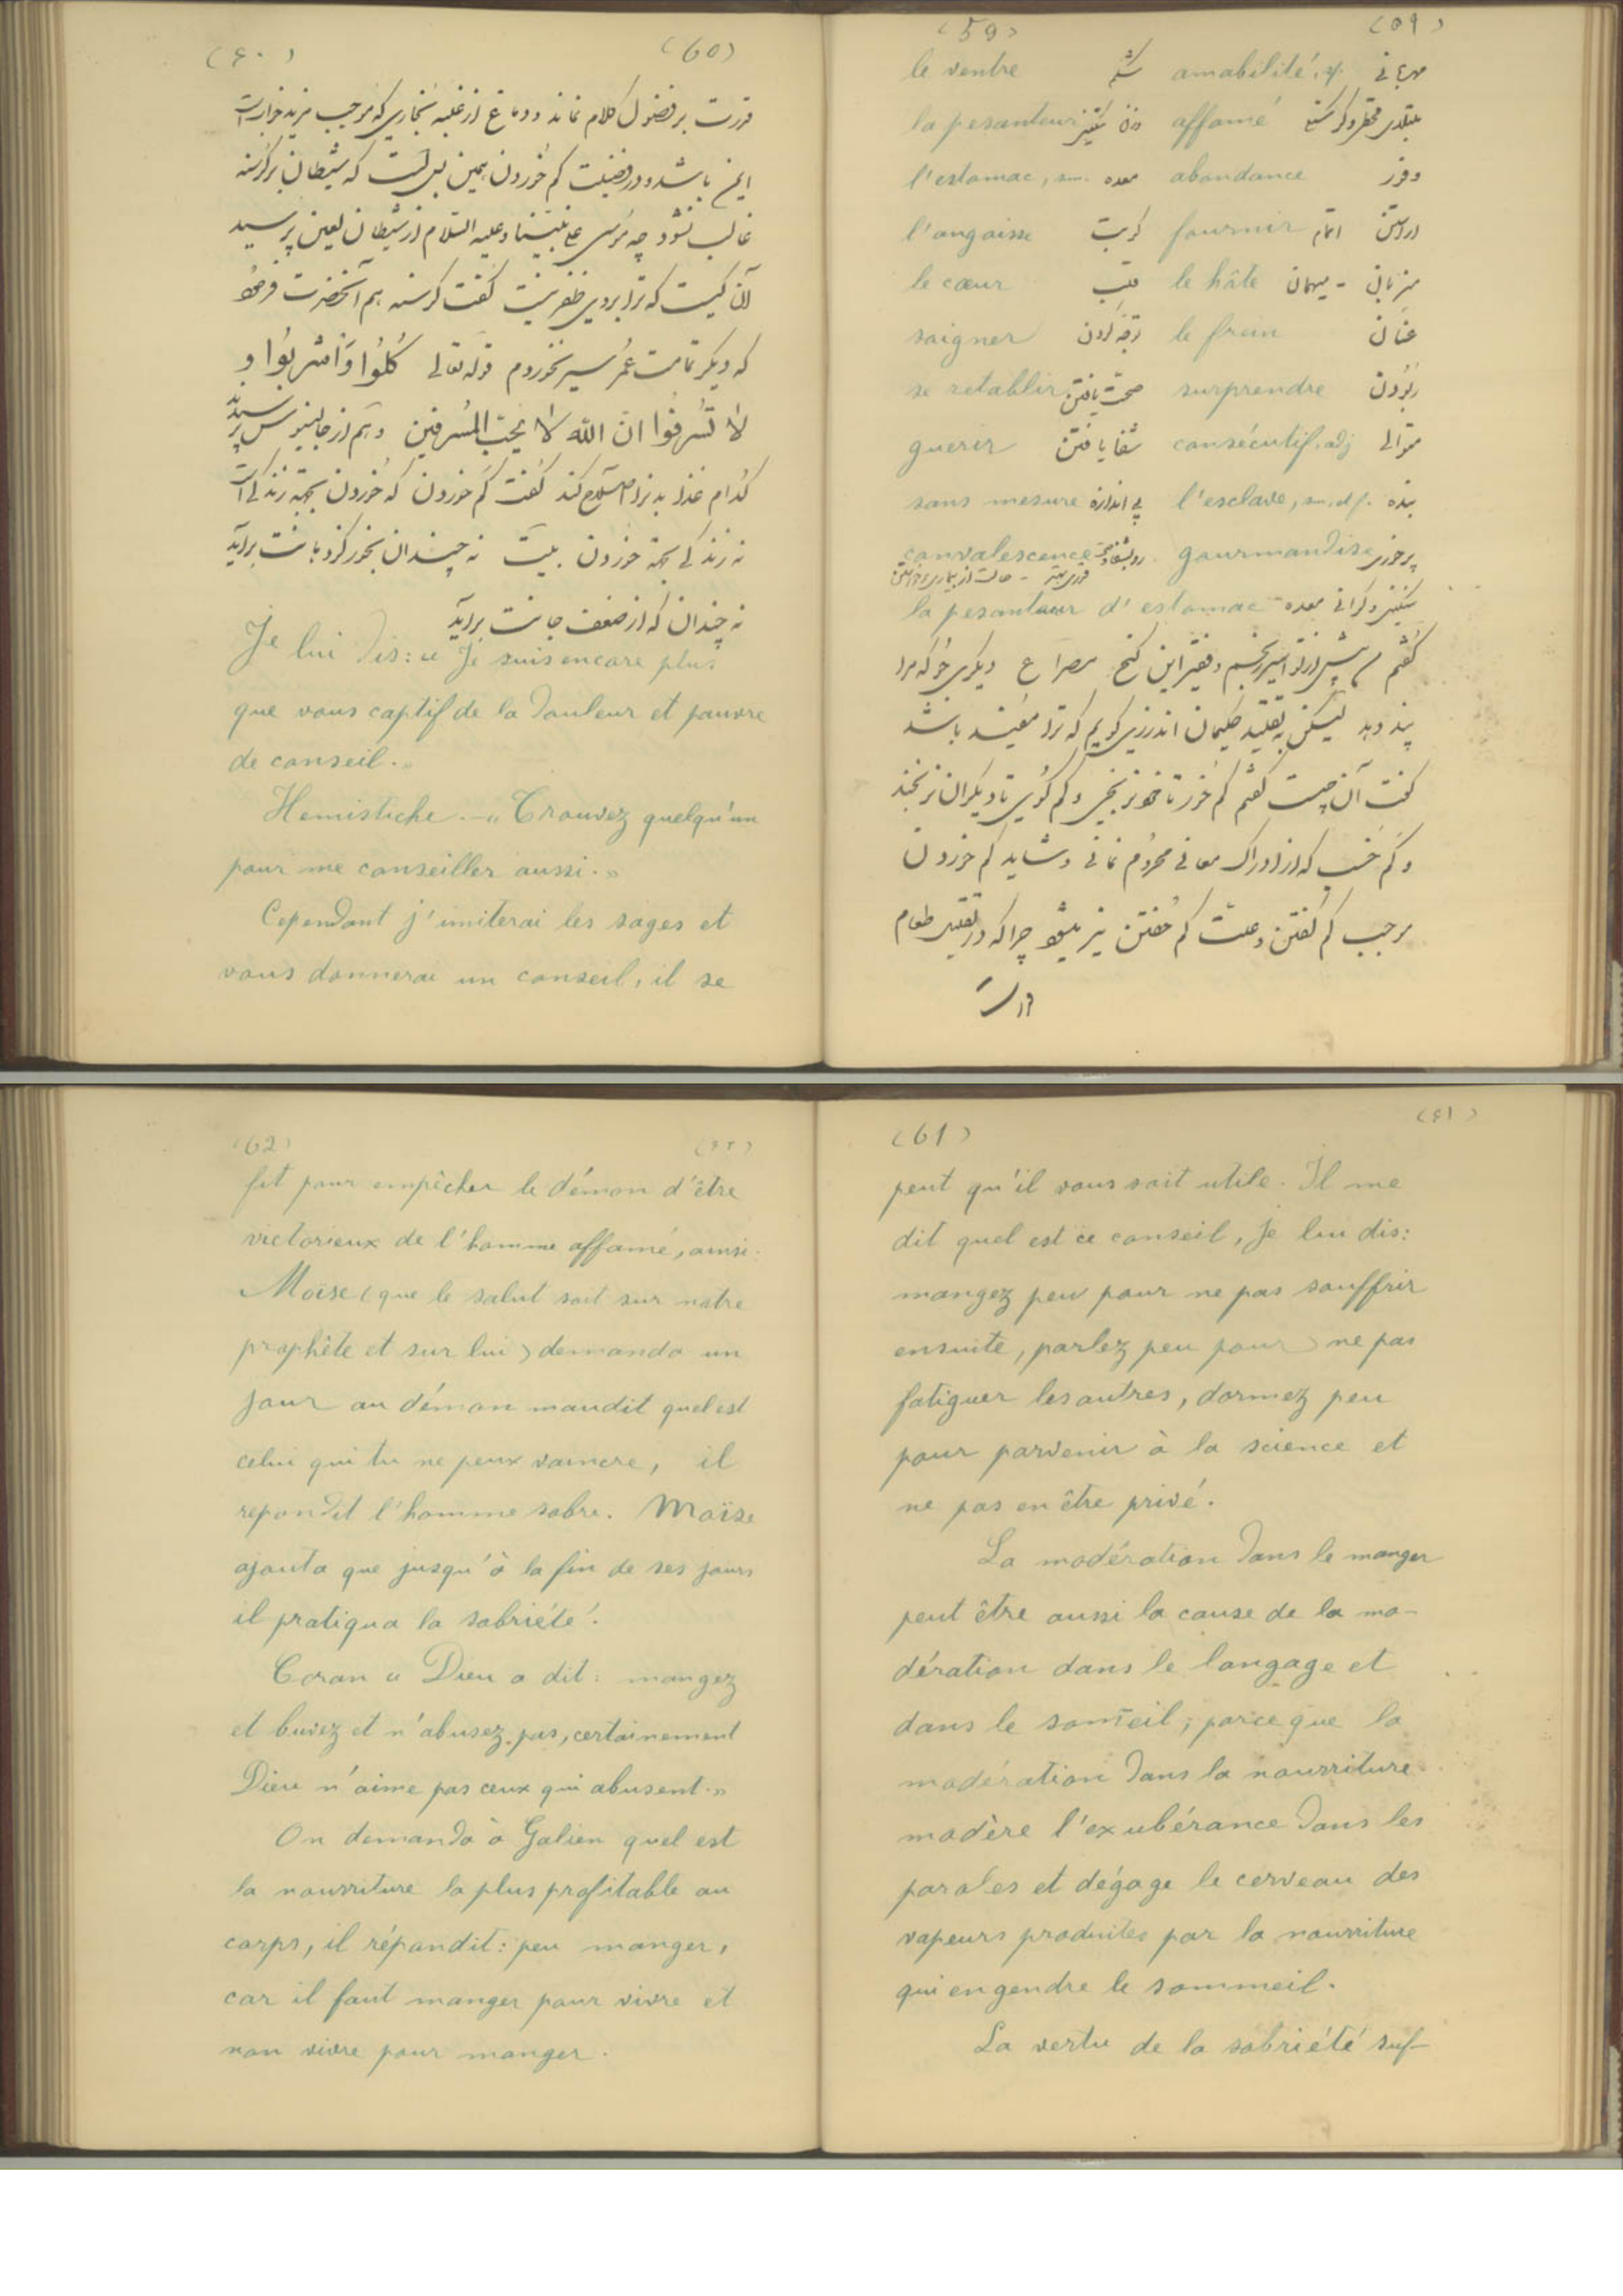 (59) (۵۹)
مهربانی amabilité, sf. شکم le ventre
affamé وزن la pesanteur
وفور abondance معده l'estomac, sm.
fournir کربت l'angoisse
میزبان - میهمان le hâte قلب le cœur
عنان le frein توجه کردن soigner
ربودن surprendre صحت یافتن se retablir
متوالی consécutif, adj شفا یافتن guerir
بنده l'esclave, sm. df. بی اندازه sans mesure
پرخوری gourmandise convalescence
سنگینی و گرانی معده la pesanteur d'estomac
گفتم من پیش از تو اسیر رنجم و فقیر این گنج مصراع دیگری جو که مرا
پند دهد لیکن به تقلید حکیمان اندرزی گویم که ترا مفید باشد
گفت آن چیست گفتم کم خور تا خود نرنجی و کم گوی تا دیگران نرنجند
و کم خسب که از ادراک معانی محروم نمانی و شاید کم خوردن
موجب کم گفتن و علت کم خفتن نیز میشود چرا که در تقلیل طعام
قدرت
(۶۰) (60)
قدرت بر فضول کلام نماند و دماغ از غلبه بخاری که موجب مزید خواب است
ایمن باشد و در فضیلت کم خوردن همین بس است که شیطان بر گرسنه
غالب نشود چه موسی علی نبینا و علیه السلام از شیطان لعین پرسید
آن کیست که ترا بر وی ظفر نیست گفت گرسنه هم آنحضرت فرمود
که دیگر تمامت عمر سیر نخوردم قوله تعالی کُلُوا وَاشْرَبُوا و
لا تُسْرِفُوا ان الله لا یحب المُسرفین و هم از جالینوس پرسیدند
کدام غذا بدنرا اصلاح کند گفت کم خوردن که خوردن بجهة زندگی است
نه زندگی بجهة خوردن بیت نه چندان بخور کز دهانت برآید
نه چندان که از ضعف جانت برآید
Je lui dis: « Je suis encore plus
que vous captif de la douleur et pauvre
de conseil. »
Hemistiche. — « Trouvez quelqu'un
pour me conseiller aussi. »
Cependant j'imiterai les sages et
vous donnerai un conseil, il se
(61) (۶۱)
peut qu'il vous soit utile. Il me
dit quel est ce conseil, je lui dis:
mangez peu pour ne pas souffrir
ensuite, parlez peu pour ne pas
fatiguer les autres, dormez peu
pour parvenir à la science et
ne pas en être privé.
La modération dans le manger
peut être aussi la cause de la mo-
dération dans le langage et
dans le som̄eil; parce que la
modération dans la nourriture
modère l'exubérance dans les
paroles et dégage le cerveau des
vapeurs produites par la nourriture
qui engendre le sommeil.
La vertu de la sobriété suf-
(62) (۶۲)
fit pour empêcher le démon d'être
victorieux de l'homme affamé, ainsi
Moïse (que le salut soit sur notre
prophête et sur lui) demanda un
jour au démon maudit quel est
celui qui tu ne peux vaincre, il
repondit l'homme sobre. Moïse
ajouta que jusqu'à la fin de ses jours
il pratiqua la sobriété.
Coran « Dieu a dit: mangez
et buvez et n'abusez pas, certainement
Dieu n'aime pas ceux qui abusent. »
On demanda à Galien quel est
la nourriture la plus profitable au
corps, il répondit: peu manger,
car il faut manger pour vivre et
non vivre pour manger.